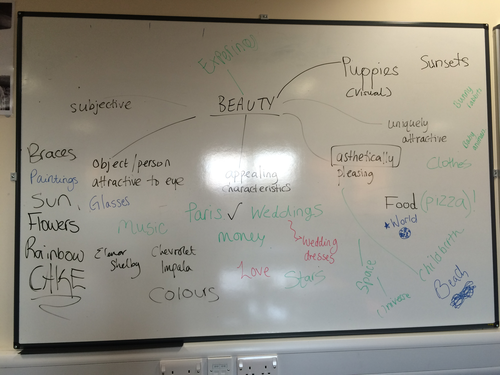 Experiences
Puppies
(visual)
Sunsets
subjective
BEAUTY
uniquely
attractive
Braces
Object/person
attractive to eye
appealing
characteristics
asthetically
pleasing
Clothes
Paintings
Sun,
Glasses
Flowers
Music
Paris ✓
Weddings
Food (pizza)!
*World
Money
Wedding
dresses
Rainbow
Elenor
Shelby
Chevrolet
Impala
Love
Stars
Space
Childbirth
Beach
CAKE
Colours
Universe